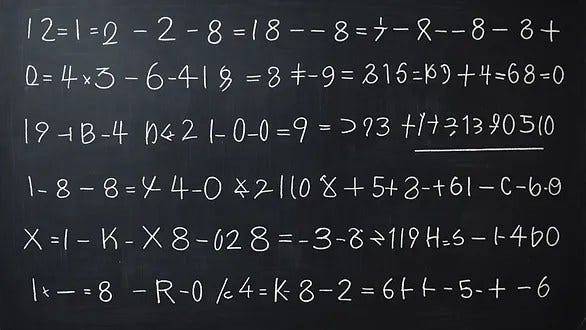 12=1=2-2-8=18--8=7-8--8-8+
0=4×3-6-418=8≠-9=315=KD+4=68=0
19+B-4 D<21-0-0=9=⊃93+1+21390510
1-8-8=Y4-0×21108+5+3-+61-C-6-0
X=1-K-X8-028=-3-8≥119H=s-1-460
1x-=8-R-0/<4=K-8-2=6++-5-+-6